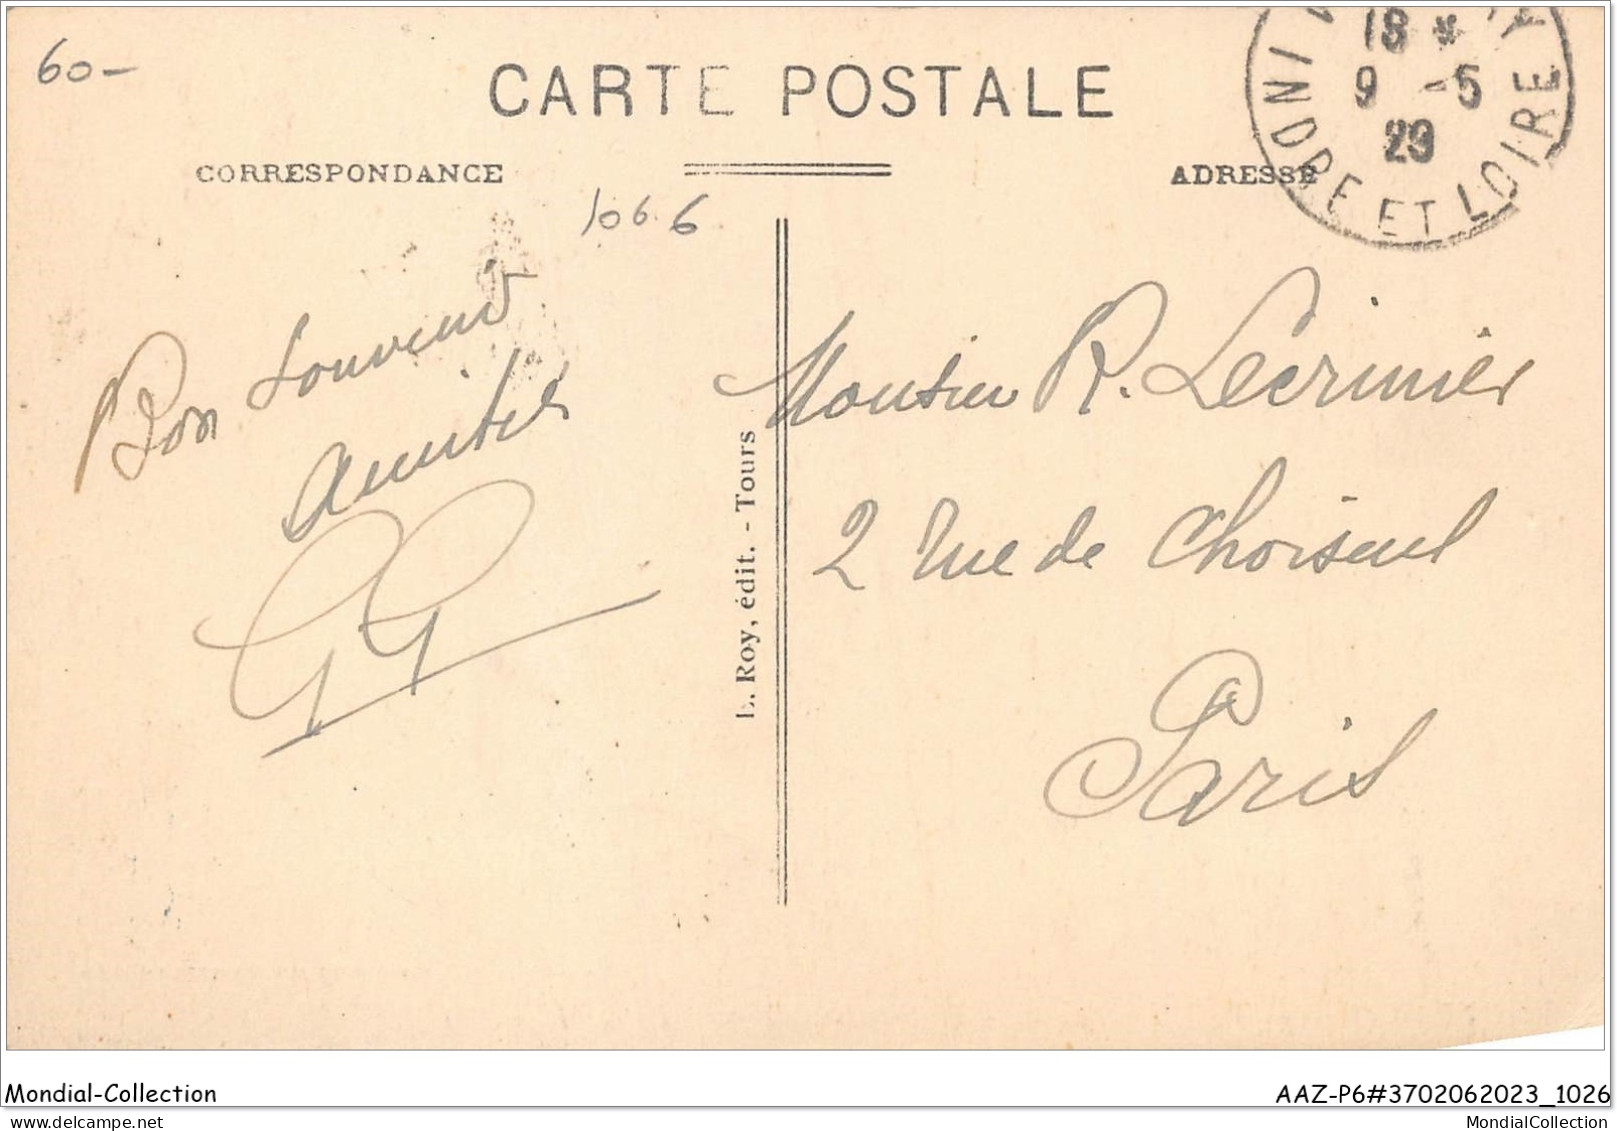 60-
CARTE POSTALE
18 *
9 -5
29
INDRE ET LOIRE
CORRESPONDANCE
ADRESSE
1066
Bon Souvenir
Amitiés
L. Roy, édit. - Tours
Monsieur R. Lecrinier
2 Rue de Choiseul
Paris
Mondial-Collection
AAZ-P6#3702062023_1026
MondialCollection
MondialCollection